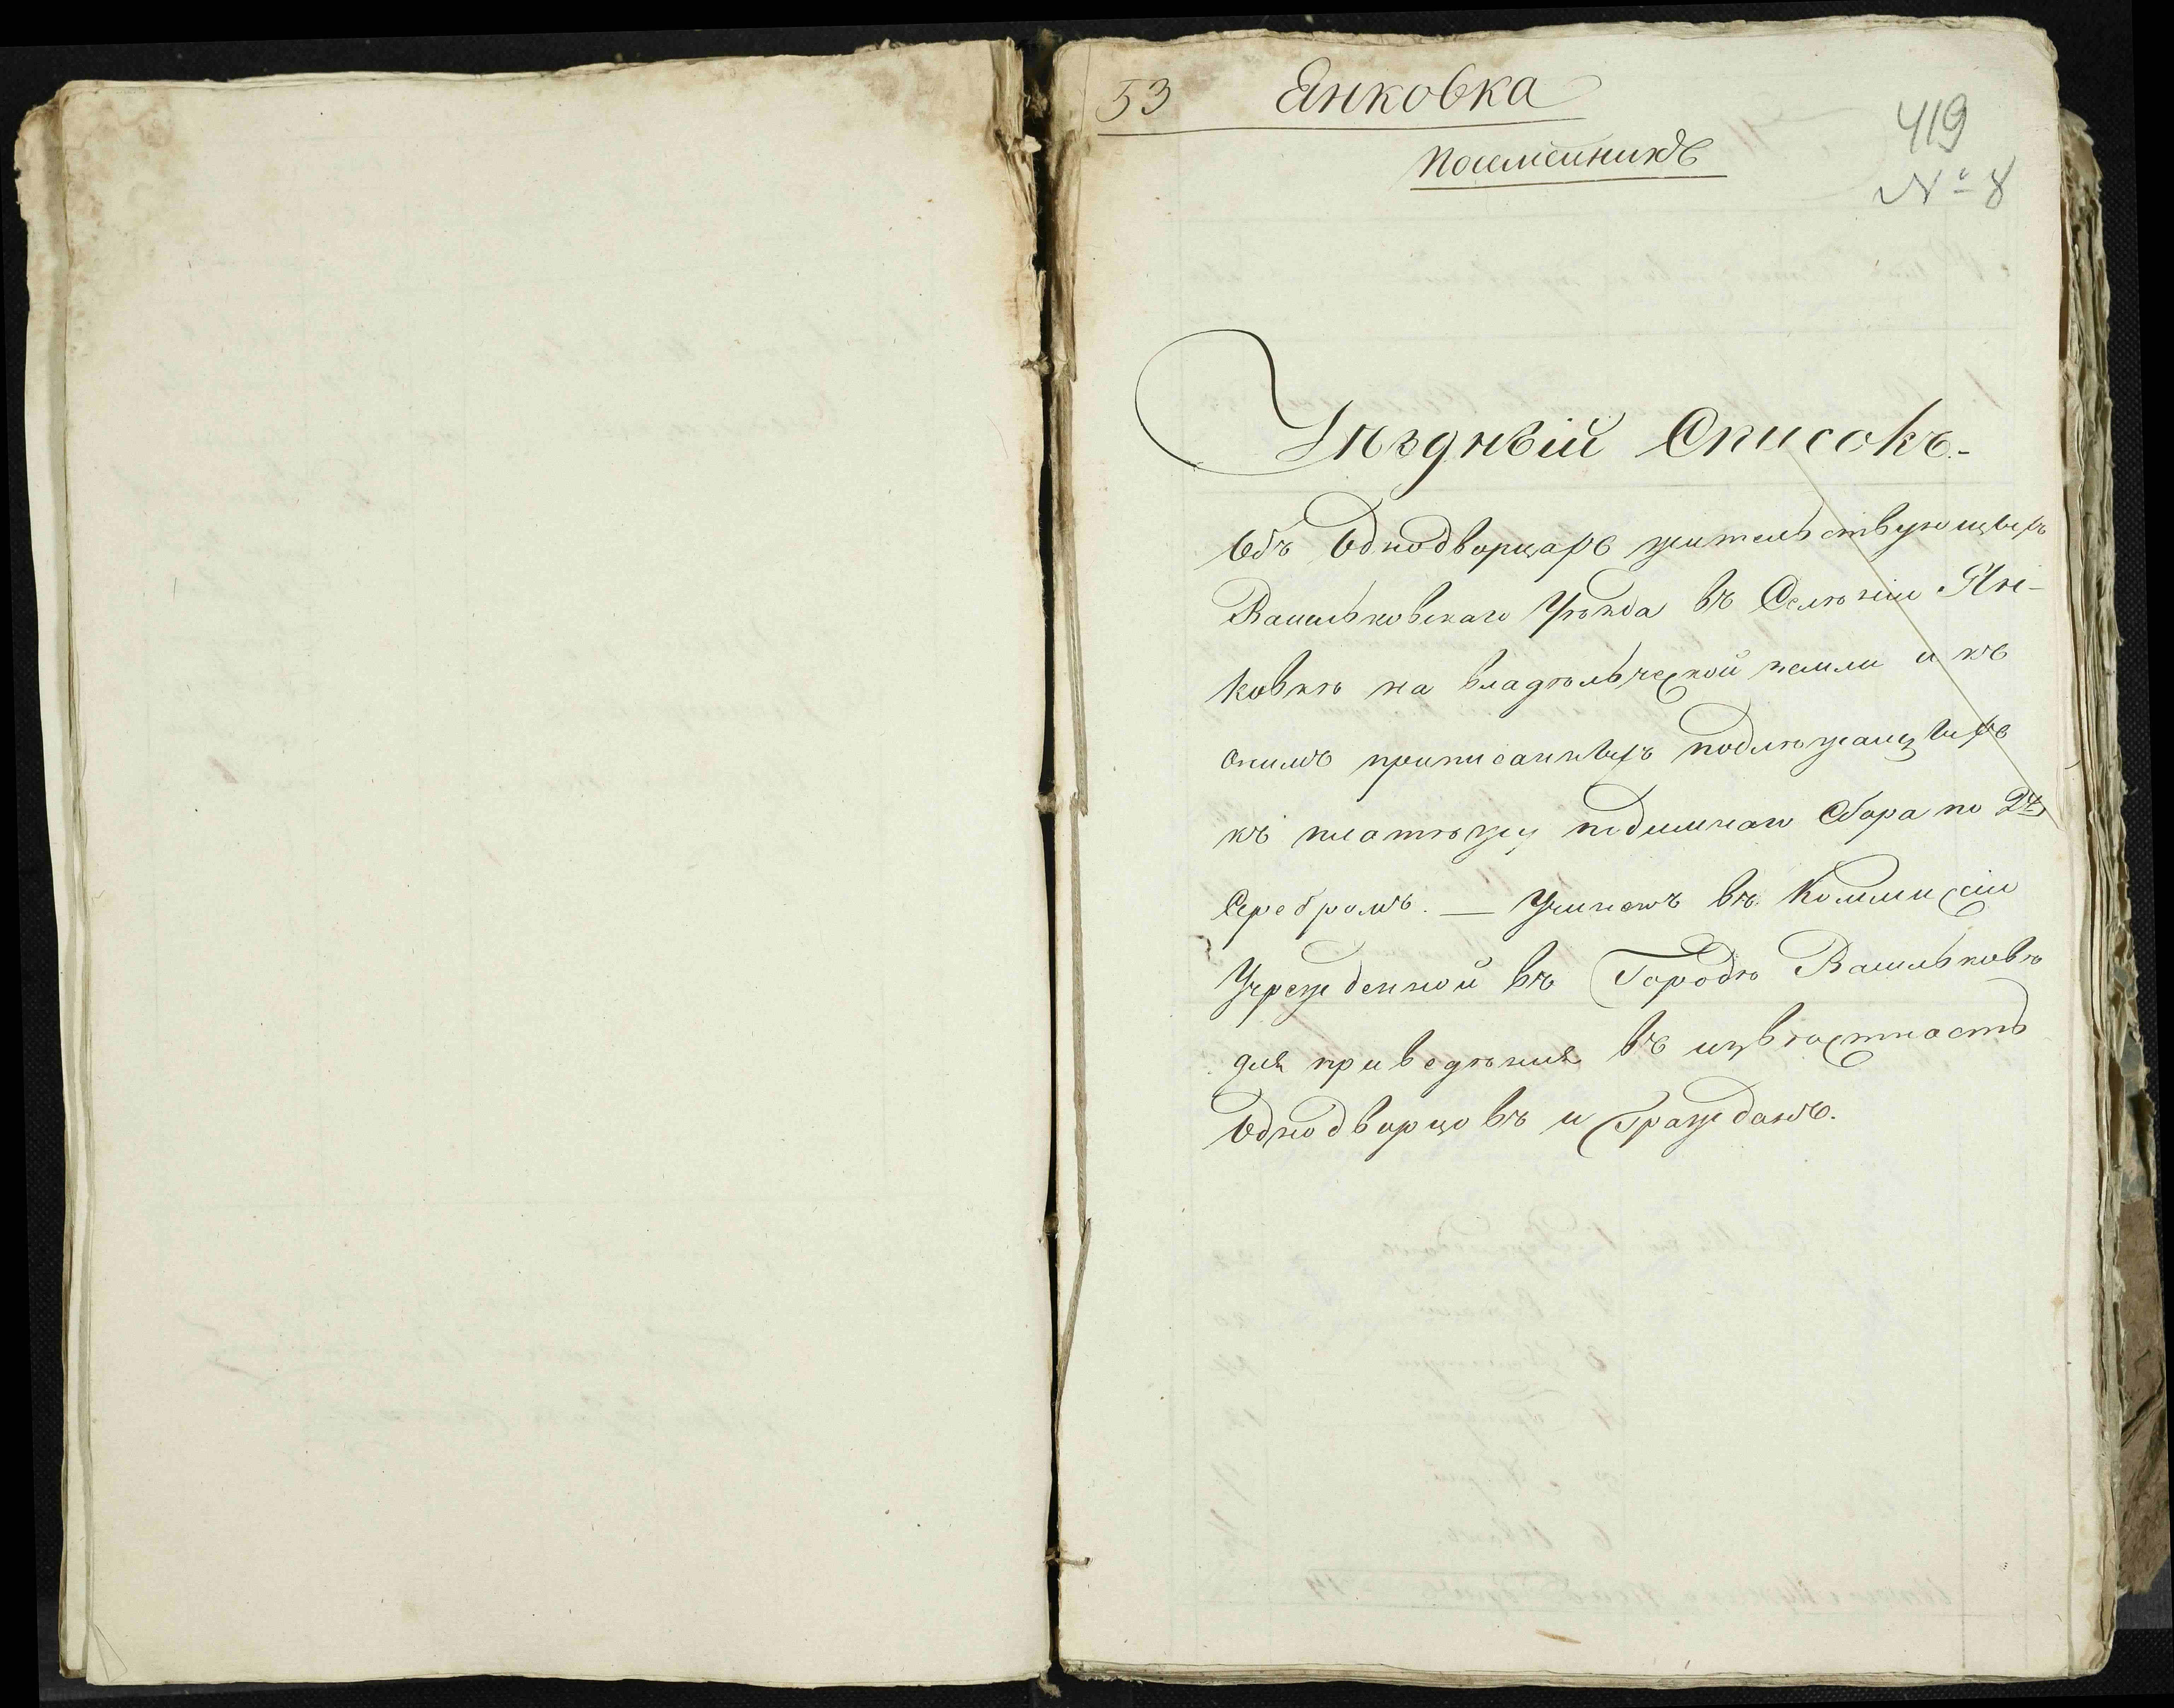 53 Янковка
419
№ 8
Уѣздный Списокъ.-
Объ Однодворцахъ жительствующихъ
Васильковскаго Уѣзда въ Селѣніи Ян-
ковкѣ на владѣльческой земли и къ
онимъ приписанныхъ подлѣжащихъ
къ платѣжу подимнаго Сбора по 2
Серебромъ. — Учиненъ въ Коммисіи
Учрежденной въ Городѣ Васильковѣ
для приведѣния въ извѣстность
Однодворцовъ и Гражданъ.